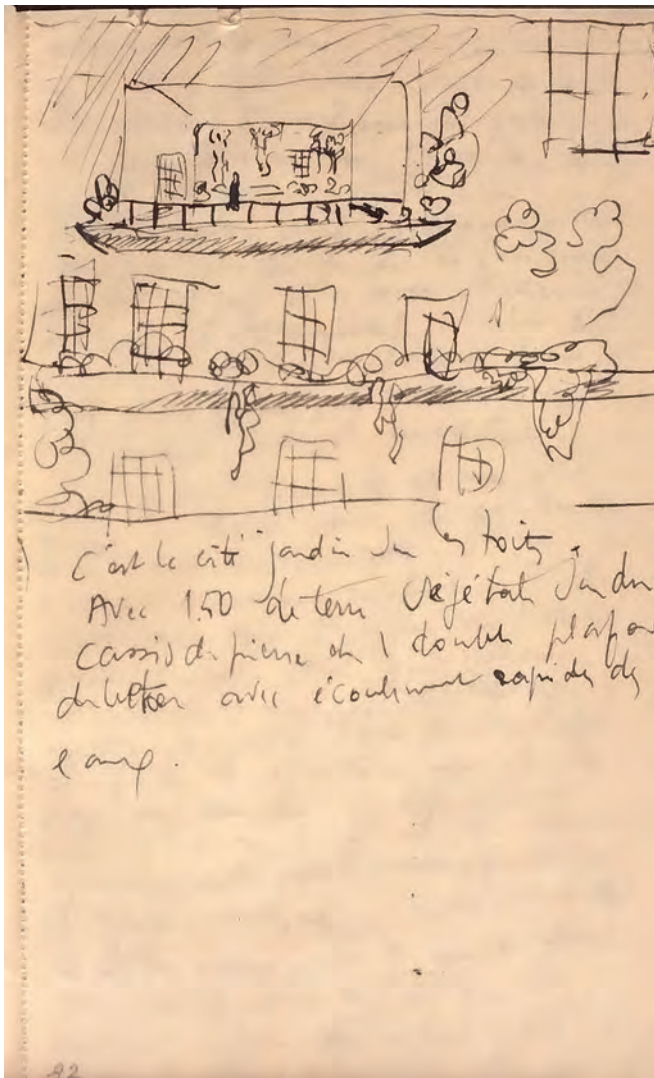 C'est la cité jardin sur les toits.
Avec 1.50 de terre végétale sur du
cassis de pierre et 1 double plafo
de béton avec écoulement rapide des
eaux.
22